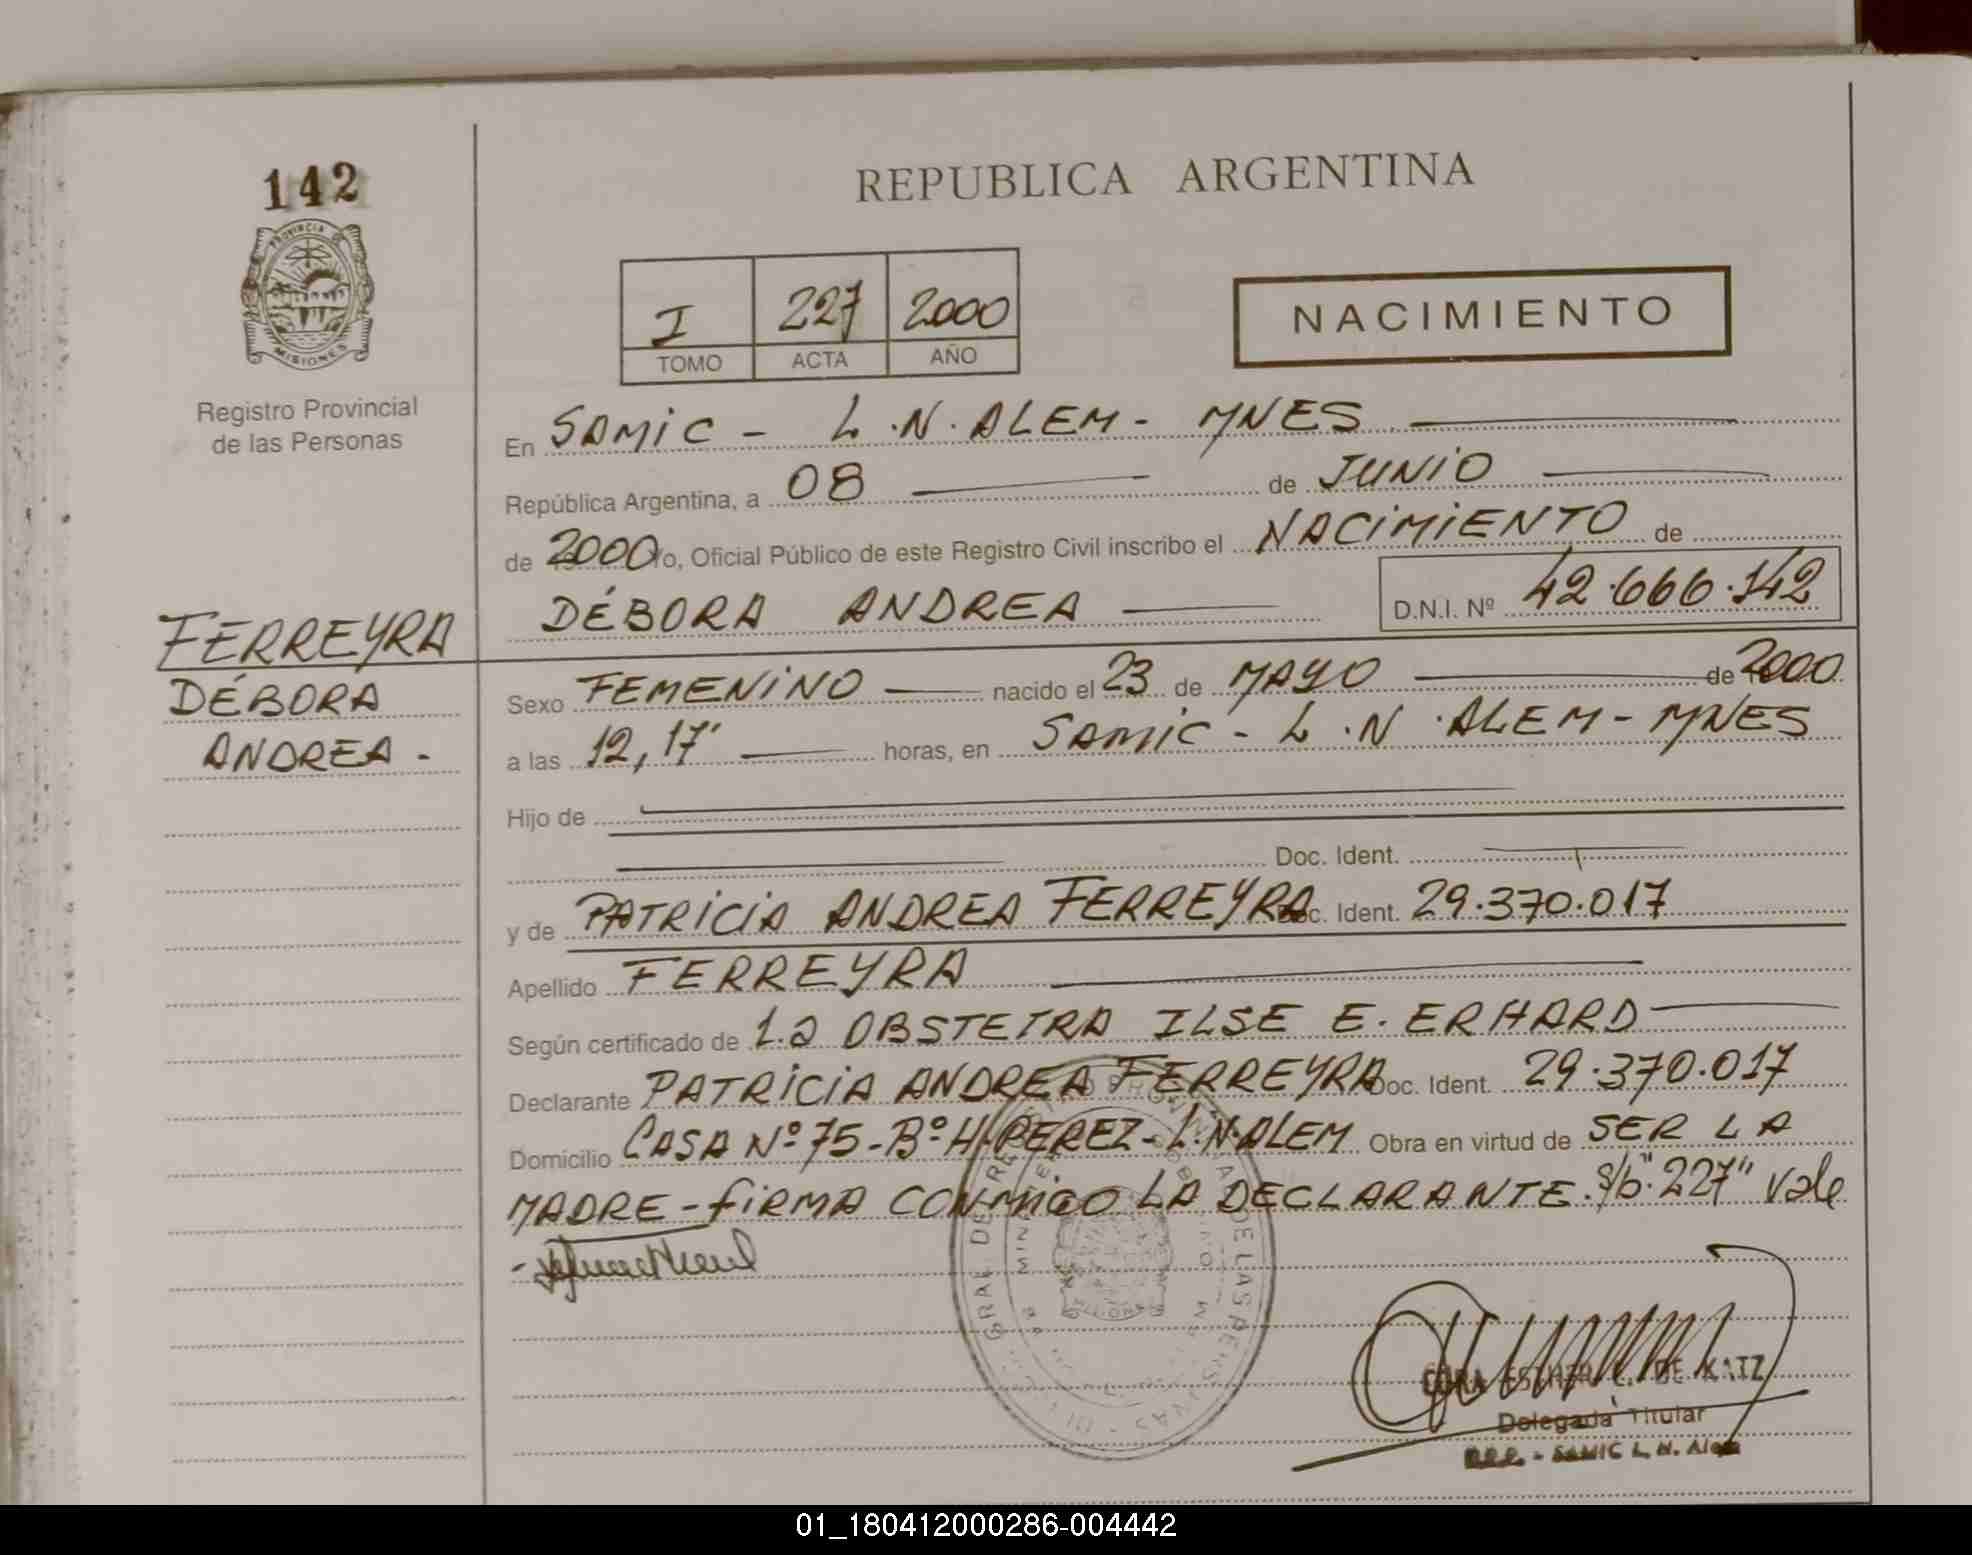 142
PROVINCIA DE
MISIONES
Registro Provincial
de las Personas
FERREYRA
DÉBORA
ANDREA -
REPUBLICA ARGENTINA
I 227 2000
TOMO ACTA AÑO
NACIMIENTO
En SAMIC - L.N. ALEM - MNES
República Argentina, a 08 de JUNIO
de 2000 Yo, Oficial Público de este Registro Civil inscribo el NACIMIENTO de
DÉBORA ANDREA D.N.I. Nº 42.666.142
Sexo FEMENINO nacido el 23 de MAYO de 2000
a las 12,17' horas, en SAMIC - L.N. ALEM - MNES
Hijo de
Doc. Ident.
y de PATRICIA ANDREA FERREYRA Doc. Ident. 29.370.017
Apellido FERREYRA
Según certificado de La OBSTETRA ILSE E. ERHARD
Declarante PATRICIA ANDREA FERREYRA Doc. Ident. 29.370.017
Domicilio CASA Nº 75 - Bº H. PEREZ - L.N. ALEM Obra en virtud de SER LA
MADRE - FIRMA CONMIGO LA DECLARANTE. S/b "227" Vale
DE KATZ
Delegada Titular
SAMIC L. N. Alem
01_180412000286-004442